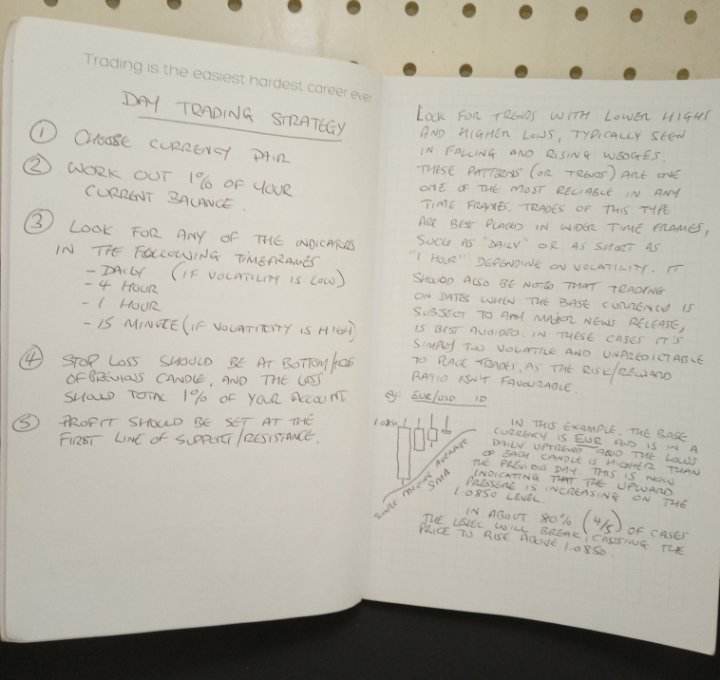 Trading is the easiest hardest career ever
DAY TRADING STRATEGY
① CHOOSE CURRENCY PAIR
② WORK OUT 1% OF YOUR
CURRENT BALANCE.
③ LOOK FOR ANY OF THE INDICATORS
IN THE FOLLOWING TIMEFRAMES
- DAILY (IF VOLATILITY IS LOW)
- 4 HOUR
- 1 HOUR
- 15 MINUTE (IF VOLATITITY IS HIGH)
④ STOP LOSS SHOULD BE AT BOTTOM/TOP
OF PREVIOUS CANDLE, AND THE LOSS
SHOULD TOTAL 1% OF YOUR ACCOUNT
⑤ PROFIT SHOULD BE SET AT THE
FIRST LINE OF SUPPORT/RESISTANCE.
LOOK FOR TRENDS WITH LOWER HIGHS
AND HIGHER LOWS, TYPICALLY SEEN
IN FALLING AND RISING WEDGES.
THESE PATTERNS (OR TRENDS) ARE ONE
ONE OF THE MOST RELIABLE IN ANY
TIME FRAMES. TRADES OF THIS TYPE
ARE BEST PLACED IN WIDER TIME FRAMES,
SUCH AS "DAILY" OR AS SHORT AS
"1 HOUR" DEPENDING ON VOLATILITY. IT
SHOULD ALSO BE NOTED THAT TRADING
ON DATES WHEN THE BASE CURRENCY IS
SUBJECT TO ANY MAJOR NEWS RELEASE,
IS BEST AVOIDED. IN THESE CASES IT'S
SIMPLY TOO VOLATILE AND UNPREDICTABLE
TO PLACE TRADES, AS THE RISK/REWARD
RATIO ISN'T FAVOURABLE.
eg EUR/USD 1D
1.0850
SIMPLE MOVING AVERAGE
SMA
IN THIS EXAMPLE, THE BASE
CURRENCY IS EUR AND IS IN A
DAILY UPTREND AND THE LOWS
OF EACH CANDLE IS HIGHER THAN
THE PREVIOUS DAY. THIS IS NOW
INDICATING THAT THE UPWARD
PRESSURE IS INCREASING ON THE
1.0850 LEVEL.
IN ABOUT 80% (4/5) OF CASES
THE LEVEL WILL BREAK, CAUSING THE
PRICE TO RISE ABOVE 1.0850.